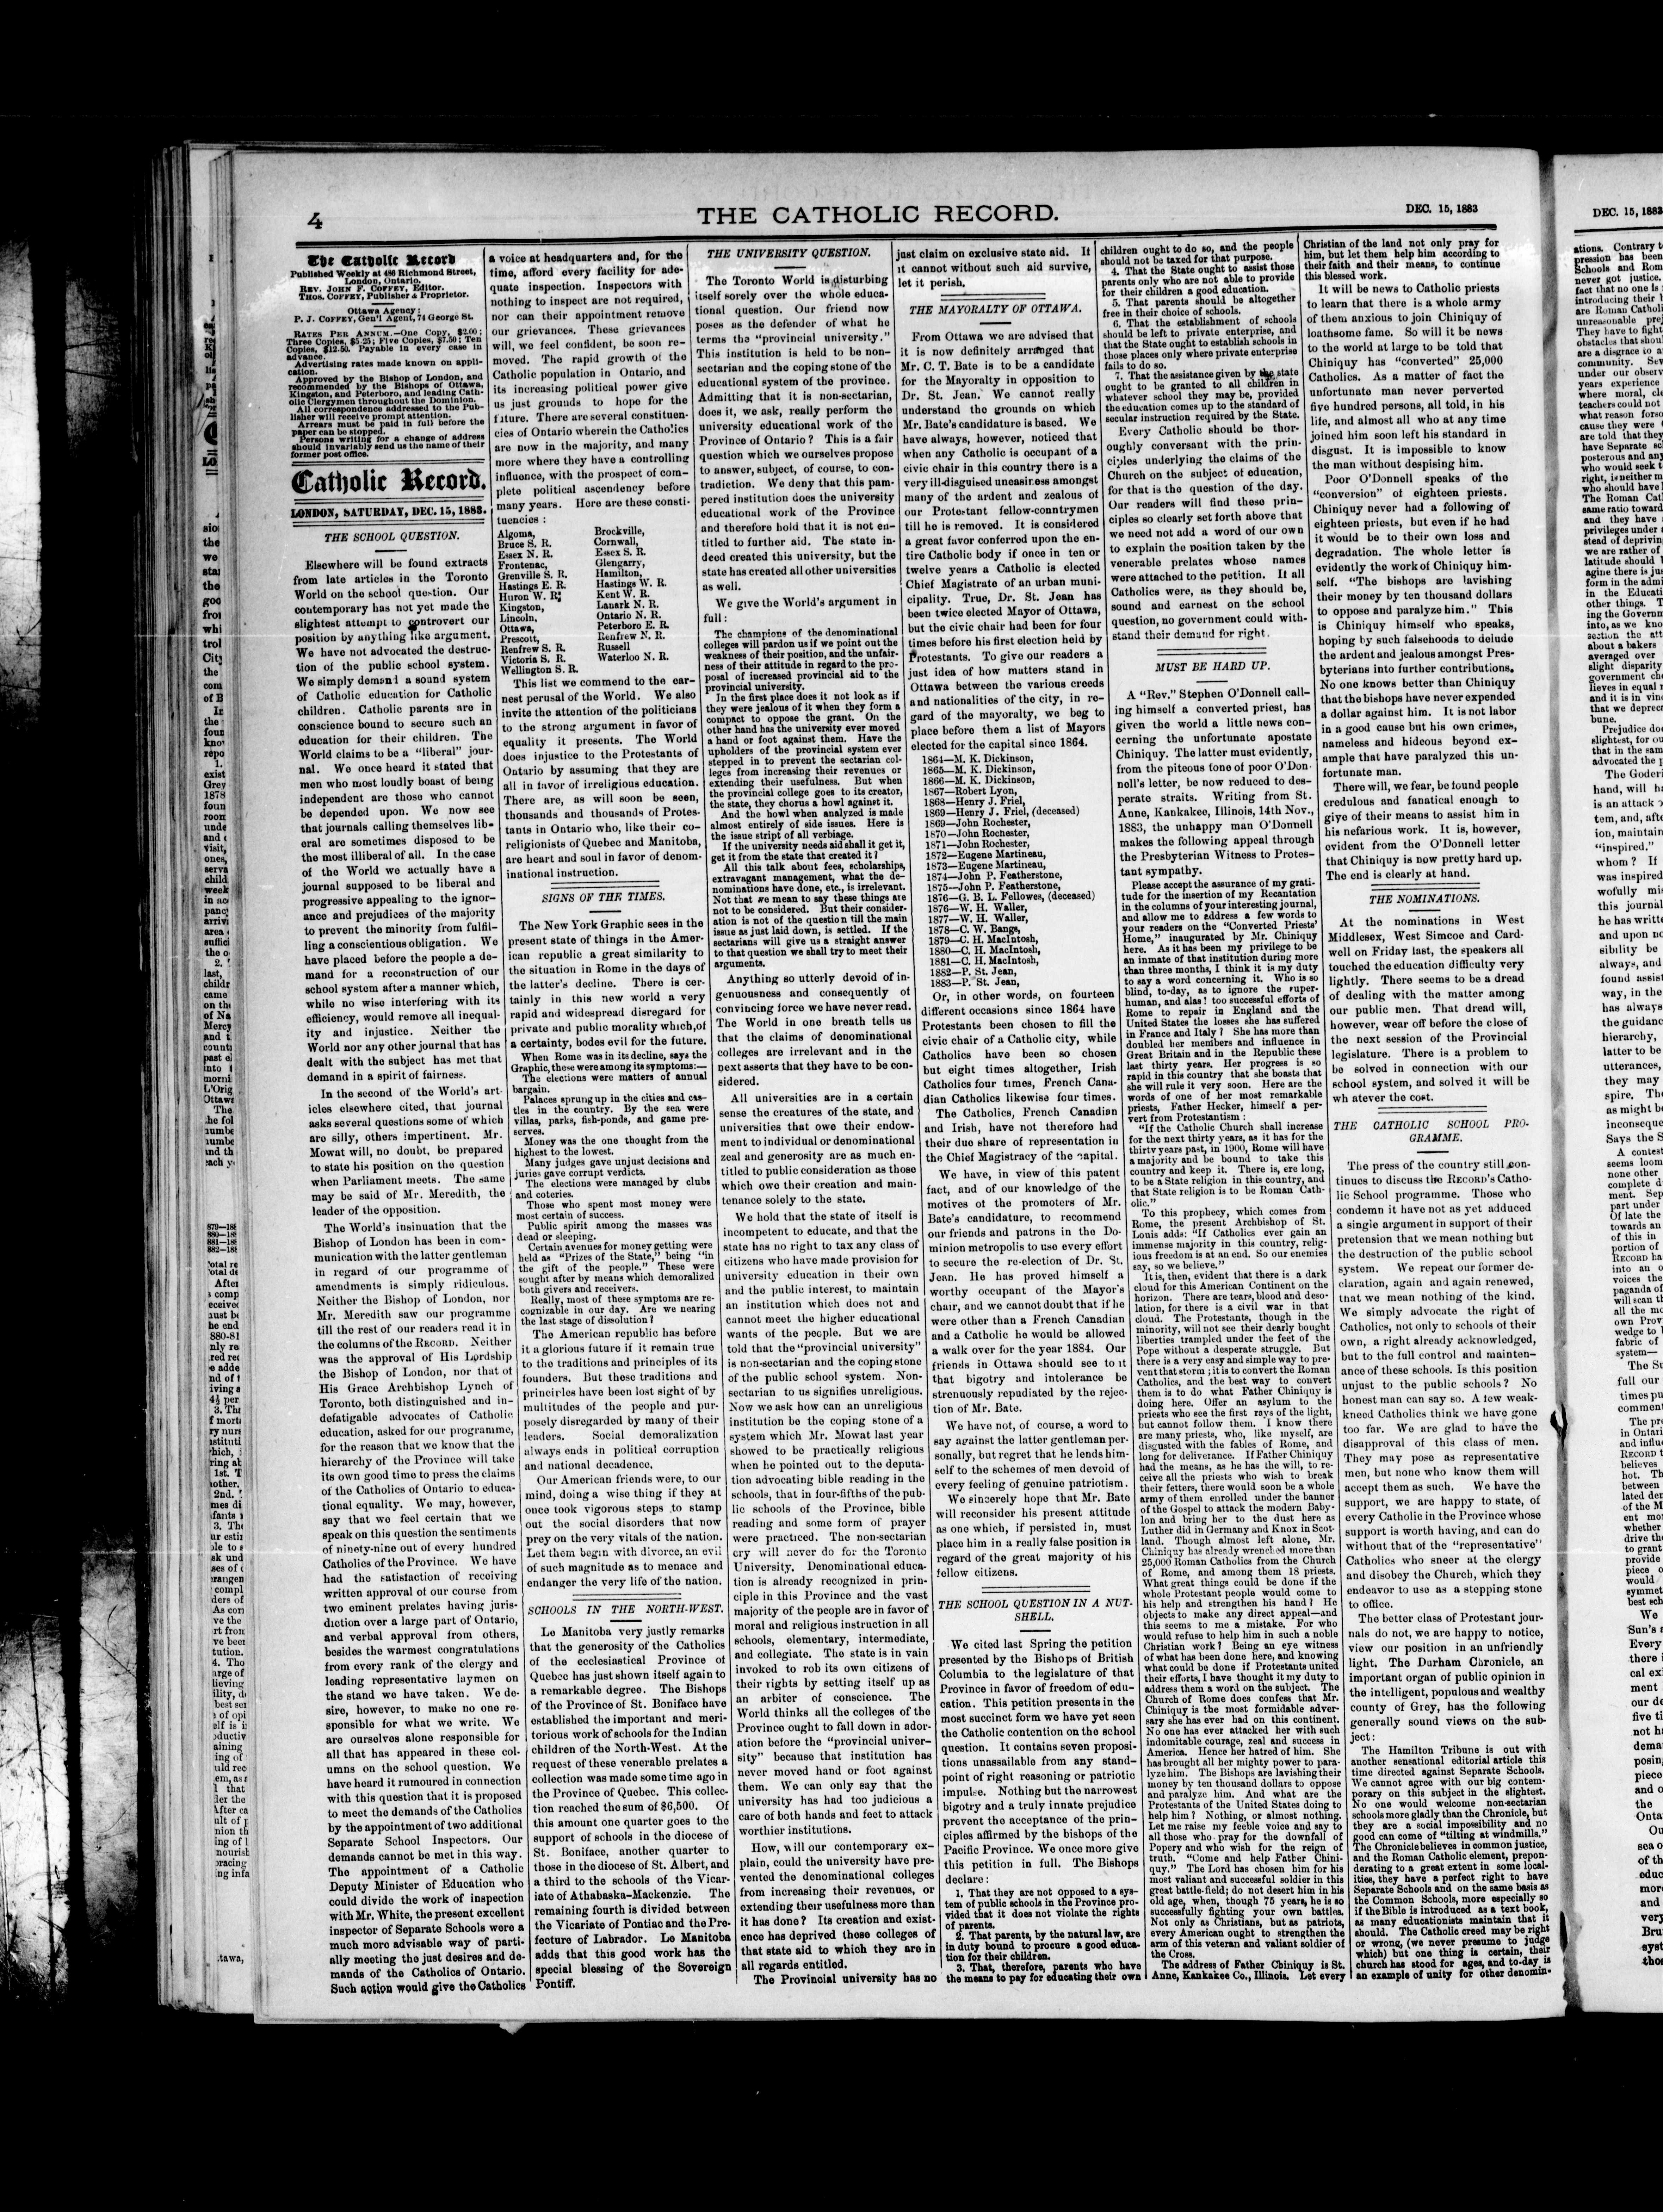 4
THE CATHOLIC RECORD.
DEC. 15, 1883
The Catholic Record
Published Weekly at 486 Richmond Street,
London, Ontario.
REV. JOHN F. COFFEY, Editor.
THOS. COFFEY, Publisher & Proprietor.
Ottawa Agency:
P. J. COFFEY, Gen'l Agent, 74 George St.
RATES PER ANNUM.—One Copy, $2.00;
Three Copies, $5.25; Five Copies, $7.50; Ten
Copies, $12.50. Payable in every case in
advance.
Advertising rates made known on appli-
cation.
Approved by the Bishop of London, and
recommended by the Bishops of Ottawa,
Kingston, and Peterboro, and leading Cath-
olic Clergymen throughout the Dominion.
All correspondence addressed to the Pub-
lisher will receive prompt attention.
Arrears must be paid in full before the
paper can be stopped.
Persons writing for a change of address
should invariably send us the name of their
former post office.
Catholic Record.
LONDON, SATURDAY, DEC. 15, 1883.
THE SCHOOL QUESTION.
Elsewhere will be found extracts
from late articles in the Toronto
World on the school question. Our
contemporary has not yet made the
slightest attempt to controvert our
position by anything like argument.
We have not advocated the destruc-
tion of the public school system.
We simply demand a sound system
of Catholic education for Catholic
children. Catholic parents are in
conscience bound to secure such an
education for their children. The
World claims to be a "liberal" jour-
nal. We once heard it stated that
men who most loudly boast of being
independent are those who cannot
be depended upon. We now see
that journals calling themselves lib-
eral are sometimes disposed to be
the most illiberal of all. In the case
of the World we actually have a
journal supposed to be liberal and
progressive appealing to the ignor-
ance and prejudices of the majority
to prevent the minority from fulfil-
ling a conscientious obligation. We
have placed before the people a de-
mand for a reconstruction of our
school system after a manner which,
while no wise interfering with its
efficiency, would remove all inequal-
ity and injustice. Neither the
World nor any other journal that has
dealt with the subject has met that
demand in a spirit of fairness.
In the second of the World's art-
icles elsewhere cited, that journal
asks several questions some of which
are silly, others impertinent. Mr.
Mowat will, no doubt, be prepared
to state his position on the question
when Parliament meets. The same
may be said of Mr. Meredith, the
leader of the opposition.
The World's insinuation that the
Bishop of London has been in com-
munication with the latter gentleman
in regard of our programme of
amendments is simply ridiculous.
Neither the Bishop of London, nor
Mr. Meredith saw our programme
till the rest of our readers read it in
the columns of the RECORD. Neither
was the approval of His Lordship
the Bishop of London, nor that of
His Grace Archbishop Lynch of
Toronto, both distinguished and in-
defatigable advocates of Catholic
education, asked for our programme,
for the reason that we know that the
hierarchy of the Province will take
its own good time to press the claims
of the Catholics of Ontario to educa-
tional equality. We may, however,
say that we feel certain that we
speak on this question the sentiments
of ninety-nine out of every hundred
Catholics of the Province. We have
had the satisfaction of receiving
written approval of our course from
two eminent prelates having juris-
diction over a large part of Ontario,
and verbal approval from others,
besides the warmest congratulations
from every rank of the clergy and
leading representative laymen on
the stand we have taken. We de-
sire, however, to make no one re-
sponsible for what we write. We
are ourselves alone responsible for
all that has appeared in these col-
umns on the school question. We
have heard it rumoured in connection
with this question that it is proposed
to meet the demands of the Catholics
by the appointment of two additional
Separate School Inspectors. Our
demands cannot be met in this way.
The appointment of a Catholic
Deputy Minister of Education who
could divide the work of inspection
with Mr. White, the present excellent
inspector of Separate Schools were a
much more advisable way of parti-
ally meeting the just desires and de-
mands of the Catholics of Ontario.
Such action would give the Catholics
a voice at headquarters and, for the
time, afford every facility for ade-
quate inspection. Inspectors with
nothing to inspect are not required,
nor can their appointment remove
our grievances. These grievances
will, we feel confident, be soon re-
moved. The rapid growth of the
Catholic population in Ontario, and
its increasing political power give
us just grounds to hope for the
future. There are several constituen-
cies of Ontario wherein the Catholics
are now in the majority, and many
more where they have a controlling
influence, with the prospect of com-
plete political ascendency before
many years. Here are these consti-
tuencies:
Algoma, Brockville,
Bruce S. R. Cornwall,
Essex N. R. Essex S. R.
Frontenac, Glengarry,
Grenville S. R. Hamilton,
Hastings E. R. Hastings W. R.
Huron W. R. Kent W. R.
Kingston, Lanark N. R.
Lincoln, Ontario N. R.
Ottawa, Peterboro E. R.
Prescott, Renfrew N. R.
Renfrew S. R. Russell
Victoria S. R. Waterloo N. R.
Wellington S. R.
This list we commend to the ear-
nest perusal of the World. We also
invite the attention of the politicians
to the strong argument in favor of
equality it presents. The World
does injustice to the Protestants of
Ontario by assuming that they are
all in favor of irreligious education.
There are, as will soon be seen,
thousands and thousands of Protes-
tants in Ontario who, like their co-
religionists of Quebec and Manitoba,
are heart and soul in favor of denom-
inational instruction.
SIGNS OF THE TIMES.
The New York Graphic sees in the
present state of things in the Amer-
ican republic a great similarity to
the situation in Rome in the days of
the latter's decline. There is cer-
tainly in this new world a very
rapid and widespread disregard for
private and public morality which, of
a certainty, bodes evil for the future.
When Rome was in its decline, says the
Graphic, these were among its symptoms:—
The elections were matters of annual
bargain.
Palaces sprung up in the cities and cas-
tles in the country. By the sea were
villas, parks, fish-ponds, and game pre-
serves.
Money was the one thought from the
highest to the lowest.
Many judges gave unjust decisions and
juries gave corrupt verdicts.
The elections were managed by clubs
and coteries.
Those who spent most money were
most certain of success.
Public spirit among the masses was
dead or sleeping.
Certain avenues for money getting were
held as "Prizes of the State," being "in
the gift of the people." These were
sought after by means which demoralized
both givers and receivers.
Really, most of these symptoms are re-
cognizable in our day. Are we nearing
the last stage of dissolution?
The American republic has before
it a glorious future if it remain true
to the traditions and principles of its
founders. But these traditions and
principles have been lost sight of by
multitudes of the people and pur-
posely disregarded by many of their
leaders. Social demoralization
always ends in political corruption
and national decadence.
Our American friends were, to our
mind, doing a wise thing if they at
once took vigorous steps to stamp
out the social disorders that now
prey on the very vitals of the nation.
Let them begin with divorce, an evil
of such magnitude as to menace and
endanger the very life of the nation.
SCHOOLS IN THE NORTH-WEST.
Le Manitoba very justly remarks
that the generosity of the Catholics
of the ecclesiastical Province of
Quebec has just shown itself again to
a remarkable degree. The Bishops
of the Province of St. Boniface have
established the important and meri-
torious work of schools for the Indian
children of the North-West. At the
request of these venerable prelates a
collection was made some time ago in
the Province of Quebec. This collec-
tion reached the sum of $6,500. Of
this amount one quarter goes to the
support of schools in the diocese of
St. Boniface, another quarter to
those in the diocese of St. Albert, and
a third to the schools of the Vicar-
iate of Athabaska-Mackenzie. The
remaining fourth is divided between
the Vicariate of Pontiac and the Pre-
fecture of Labrador. Le Manitoba
adds that this good work has the
special blessing of the Sovereign
Pontiff.
THE UNIVERSITY QUESTION.
The Toronto World is disturbing
itself sorely over the whole educa-
tional question. Our friend now
poses as the defender of what he
terms the "provincial university."
This institution is held to be non-
sectarian and the coping stone of the
educational system of the province.
Admitting that it is non-sectarian,
does it, we ask, really perform the
university educational work of the
Province of Ontario? This is a fair
question which we ourselves propose
to answer, subject, of course, to con-
tradiction. We deny that this pam-
pered institution does the university
educational work of the Province
and therefore hold that it is not en-
titled to further aid. The state in-
deed created this university, but the
state has created all other universities
as well.
We give the World's argument in
full:
The champions of the denominational
colleges will pardon us if we point out the
weakness of their position, and the unfair-
ness of their attitude in regard to the pro-
posal of increased provincial aid to the
provincial university.
In the first place does it not look as if
they were jealous of it when they form a
compact to oppose the grant. On the
other hand has the university ever moved
a hand or foot against them. Have the
upholders of the provincial system ever
stepped in to prevent the sectarian col-
leges from increasing their revenues or
extending their usefulness. But when
the provincial college goes to its creator,
the state, they chorus a howl against it.
And the howl when analyzed is made
almost entirely of side issues. Here is
the issue stript of all verbiage.
If the university needs aid shall it get it,
get it from the state that created it?
All this talk about fees, scholarships,
extravagant management, what the de-
nominations have done, etc., is irrelevant.
Not that we mean to say these things are
not to be considered. But their consider-
ation is not of the question till the main
issue as just laid down, is settled. If the
sectarians will give us a straight answer
to that question we shall try to meet their
arguments.
Anything so utterly devoid of in-
genuousness and consequently of
convincing force we have never read.
The World in one breath tells us
that the claims of denominational
colleges are irrelevant and in the
next asserts that they have to be con-
sidered.
All universities are in a certain
sense the creatures of the state, and
universities that owe their endow-
ment to individual or denominational
zeal and generosity are as much en-
titled to public consideration as those
which owe their creation and main-
tenance solely to the state.
We hold that the state of itself is
incompetent to educate, and that the
state has no right to tax any class of
citizens who have made provision for
university education in their own
and the public interest, to maintain
an institution which does not and
cannot meet the higher educational
wants of the people. But we are
told that the "provincial university"
is non-sectarian and the coping stone
of the public school system. Non-
sectarian to us signifies unreligious.
Now we ask how can an unreligious
institution be the coping stone of a
system which Mr. Mowat last year
showed to be practically religious
when he pointed out to the deputa-
tion advocating bible reading in the
schools, that in four-fifths of the pub-
lic schools of the Province, bible
reading and some form of prayer
were practiced. The non-sectarian
cry will never do for the Toronto
University. Denominational educa-
tion is already recognized in prin-
ciple in this Province and the vast
majority of the people are in favor of
moral and religious instruction in all
schools, elementary, intermediate,
and collegiate. The state is in vain
invoked to rob its own citizens of
their rights by setting itself up as
an arbiter of conscience. The
World thinks all the colleges of the
Province ought to fall down in ador-
ation before the "provincial univer-
sity" because that institution has
never moved hand or foot against
them. We can only say that the
university has had too judicious a
care of both hands and feet to attack
worthier institutions.
How, will our contemporary ex-
plain, could the university have pre-
vented the denominational colleges
from increasing their revenues, or
extending their usefulness more than
it has done? Its creation and exist-
ence has deprived those colleges of
that state aid to which they are in
all regards entitled.
The Provincial university has no
just claim on exclusive state aid. If
it cannot without such aid survive,
let it perish.
THE MAYORALTY OF OTTAWA.
From Ottawa we are advised that
it is now definitely arranged that
Mr. C. T. Bate is to be a candidate
for the Mayoralty in opposition to
Dr. St. Jean. We cannot really
understand the grounds on which
Mr. Bate's candidature is based. We
have always, however, noticed that
when any Catholic is occupant of a
civic chair in this country there is a
very ill-disguised uneasiness amongst
many of the ardent and zealous of
our Protestant fellow-countrymen
till he is removed. It is considered
a great favor conferred upon the en-
tire Catholic body if once in ten or
twelve years a Catholic is elected
Chief Magistrate of an urban muni-
cipality. True, Dr. St. Jean has
been twice elected Mayor of Ottawa,
but the civic chair had been for four
times before his first election held by
Protestants. To give our readers a
just idea of how matters stand in
Ottawa between the various creeds
and nationalities of the city, in re-
gard of the mayoralty, we beg to
place before them a list of Mayors
elected for the capital since 1864.
1864—M. K. Dickinson,
1865—M. K. Dickinson,
1866—M. K. Dickinson,
1867—Robert Lyon,
1868—Henry J. Friel,
1869—Henry J. Friel, (deceased)
1869—John Rochester,
1870—John Rochester,
1871—John Rochester,
1872—Eugene Martineau,
1873—Eugene Martineau,
1874—John P. Featherstone,
1875—John P. Featherstone,
1876—G. B. L. Fellowes, (deceased)
1876—W. H. Waller,
1877—W. H. Waller,
1878—C. W. Bangs,
1879—C. H. MacIntosh,
1880—C. H. MacIntosh,
1881—C. H. MacIntosh,
1882—P. St. Jean,
1883—P. St. Jean,
Or, in other words, on fourteen
different occasions since 1864 have
Protestants been chosen to fill the
civic chair of a Catholic city, while
Catholics have been so chosen
but eight times altogether, Irish
Catholics four times, French Cana-
dian Catholics likewise four times.
The Catholics, French Canadian
and Irish, have not therefore had
their due share of representation in
the Chief Magistracy of the capital.
We have, in view of this patent
fact, and of our knowledge of the
motives of the promoters of Mr.
Bate's candidature, to recommend
our friends and patrons in the Do-
minion metropolis to use every effort
to secure the re-election of Dr. St.
Jean. He has proved himself a
worthy occupant of the Mayor's
chair, and we cannot doubt that if he
were other than a French Canadian
and a Catholic he would be allowed
a walk over for the year 1884. Our
friends in Ottawa should see to it
that bigotry and intolerance be
strenuously repudiated by the rejec-
tion of Mr. Bate.
We have not, of course, a word to
say against the latter gentleman per-
sonally, but regret that he lends him-
self to the schemes of men devoid of
every feeling of genuine patriotism.
We sincerely hope that Mr. Bate
will reconsider his present attitude
as one which, if persisted in, must
place him in a really false position in
regard of the great majority of his
fellow citizens.
THE SCHOOL QUESTION IN A NUT-
SHELL.
We cited last Spring the petition
presented by the Bishops of British
Columbia to the legislature of that
Province in favor of freedom of edu-
cation. This petition presents in the
most succinct form we have yet seen
the Catholic contention on the school
question. It contains seven proposi-
tions unassailable from any stand-
point of right reasoning or patriotic
impulse. Nothing but the narrowest
bigotry and a truly innate prejudice
prevent the acceptance of the prin-
ciples affirmed by the bishops of the
Pacific Province. We once more give
this petition in full. The Bishops
declare:
1. That they are not opposed to a sys-
tem of public schools in the Province pro-
vided that it does not violate the rights
of parents.
2. That parents, by the natural law, are
in duty bound to procure a good educa-
tion for their children.
3. That, therefore, parents who have
the means to pay for educating their own
children ought to do so, and the people
should not be taxed for that purpose.
4. That the State ought to assist those
parents only who are not able to provide
for their children a good education.
5. That parents should be altogether
free in their choice of schools.
6. That the establishment of schools
should be left to private enterprise, and
that the State ought to establish schools in
those places only where private enterprise
fails to do so.
7. That the assistance given by the state
ought to be granted to all children in
whatever school they may be, provided
the education comes up to the standard of
secular instruction required by the State.
Every Catholic should be thor-
oughly conversant with the prin-
ciples underlying the claims of the
Church on the subject of education,
for that is the question of the day.
Our readers will find these prin-
ciples so clearly set forth above that
we need not add a word of our own
to explain the position taken by the
venerable prelates whose names
were attached to the petition. If all
Catholics were, as they should be,
sound and earnest on the school
question, no government could with-
stand their demand for right.
MUST BE HARD UP.
A "Rev." Stephen O'Donnell call-
ing himself a converted priest, has
given the world a little news con-
cerning the unfortunate apostate
Chiniquy. The latter must evidently,
from the piteous tone of poor O'Don-
nell's letter, be now reduced to des-
perate straits. Writing from St.
Anne, Kankakee, Illinois, 14th Nov.,
1883, the unhappy man O'Donnell
makes the following appeal through
the Presbyterian Witness to Protes-
tant sympathy.
Please accept the assurance of my grati-
tude for the insertion of my Recantation
in the columns of your interesting journal,
and allow me to address a few words to
your readers on the "Converted Priests'
Home," inaugurated by Mr. Chiniquy
here. As it has been my privilege to be
an inmate of that institution during more
than three months, I think it is my duty
to say a word concerning it. Who is so
blind, to-day, as to ignore the super-
human, and alas! too successful efforts of
Rome to repair in England and the
United States the losses she has suffered
in France and Italy? She has more than
doubled her members and influence in
Great Britain and in the Republic these
last thirty years. Her progress is so
rapid in this country that she boasts that
she will rule it very soon. Here are the
words of one of her most remarkable
priests, Father Hecker, himself a per-
vert from Protestantism:
"If the Catholic Church shall increase
for the next thirty years, as it has for the
thirty years past, in 1900, Rome will have
a majority and be bound to take this
country and keep it. There is, ere long,
to be a State religion in this country, and
that State religion is to be Roman Cath-
olic."
To this prophecy, which comes from
Rome, the present Archbishop of St.
Louis adds: "If Catholics ever gain an
immense majority in this country, relig-
ious freedom is at an end. So our enemies
say, so we believe."
It is, then, evident that there is a dark
cloud for this American Continent on the
horizon. There are tears, blood and deso-
lation, for there is a civil war in that
cloud. The Protestants, though in the
minority, will not see their dearly bought
liberties trampled under the feet of the
Pope without a desperate struggle. But
there is a very easy and simple way to pre-
vent that storm; it is to convert the Roman
Catholics, and the best way to convert
them is to do what Father Chiniquy is
doing here. Offer an asylum to the
priests who see the first rays of the light,
but cannot follow them. I know there
are many priests, who, like myself, are
disgusted with the fables of Rome, and
long for deliverance. If Father Chiniquy
had the means, as he has the will, to re-
ceive all the priests who wish to break
their fetters, there would soon be a whole
army of them enrolled under the banner
of the Gospel to attack the modern Baby-
lon and bring her to the dust here as
Luther did in Germany and Knox in Scot-
land. Though almost left alone, Mr.
Chiniquy has already wrenched more than
25,000 Roman Catholics from the Church
of Rome, and among them 18 priests.
What great things could be done if the
whole Protestant people would come to
his help and strengthen his hand? He
objects to make any direct appeal—and
this seems to me a mistake. For who
would refuse to help him in such a noble
Christian work? Being an eye witness
of what has been done here, and knowing
what could be done if Protestants united
their efforts, I have thought it my duty to
address them a word on the subject. The
Church of Rome does confess that Mr.
Chiniquy is the most formidable adver-
sary she has ever had on this continent.
No one has ever attacked her with such
indomitable courage, zeal and success in
America. Hence her hatred of him. She
has brought all her mighty power to para-
lyze him. The Bishops are lavishing their
money by ten thousand dollars to oppose
and paralyze him. And what are the
Protestants of the United States doing to
help him? Nothing, or almost nothing.
Let me raise my feeble voice and say to
all those who pray for the downfall of
Popery and who wish for the reign of
truth. "Come and help Father Chini-
quy." The Lord has chosen him for his
most valiant and successful soldier in this
great battle-field; do not desert him in his
old age, when, though 75 years, he is so
successfully fighting your own battles.
Not only as Christians, but as patriots,
every American ought to strengthen the
arm of this veteran and valiant soldier of
the Cross.
The address of Father Chiniquy is St.
Anne, Kankakee Co., Illinois. Let every
Christian of the land not only pray for
him, but let them help him according to
their faith and their means, to continue
this blessed work.
It will be news to Catholic priests
to learn that there is a whole army
of them anxious to join Chiniquy of
loathsome fame. So will it be news
to the world at large to be told that
Chiniquy has "converted" 25,000
Catholics. As a matter of fact the
unfortunate man never perverted
five hundred persons, all told, in his
life, and almost all who at any time
joined him soon left his standard in
disgust. It is impossible to know
the man without despising him.
Poor O'Donnell speaks of the
"conversion" of eighteen priests.
Chiniquy never had a following of
eighteen priests, but even if he had
it would be to their own loss and
degradation. The whole letter is
evidently the work of Chiniquy him-
self. "The bishops are lavishing
their money by ten thousand dollars
to oppose and paralyze him." This
is Chiniquy himself who speaks,
hoping by such falsehoods to delude
the ardent and jealous amongst Pres-
byterians into further contributions.
No one knows better than Chiniquy
that the bishops have never expended
a dollar against him. It is not labor
in a good cause but his own crimes,
nameless and hideous beyond ex-
ample that have paralyzed this un-
fortunate man.
There will, we fear, be found people
credulous and fanatical enough to
give of their means to assist him in
his nefarious work. It is, however,
evident from the O'Donnell letter
that Chiniquy is now pretty hard up.
The end is clearly at hand.
THE NOMINATIONS.
At the nominations in West
Middlesex, West Simcoe and Card-
well on Friday last, the speakers all
touched the education difficulty very
lightly. There seems to be a dread
of dealing with the matter among
our public men. That dread will,
however, wear off before the close of
the next session of the Provincial
legislature. There is a problem to
be solved in connection with our
school system, and solved it will be
wh atever the cost.
THE CATHOLIC SCHOOL PRO-
GRAMME.
The press of the country still con-
tinues to discuss the RECORD's Catho-
lic School programme. Those who
condemn it have not as yet adduced
a single argument in support of their
pretension that we mean nothing but
the destruction of the public school
system. We repeat our former de-
claration, again and again renewed,
that we mean nothing of the kind.
We simply advocate the right of
Catholics, not only to schools of their
own, a right already acknowledged,
but to the full control and mainten-
ance of these schools. Is this position
unjust to the public schools? No
honest man can say so. A few weak-
kneed Catholics think we have gone
too far. We are glad to have the
disapproval of this class of men.
They may pose as representative
men, but none who know them will
accept them as such. We have the
support, we are happy to state, of
every Catholic in the Province whose
support is worth having, and can do
without that of the "representative"
Catholics who sneer at the clergy
and disobey the Church, which they
endeavor to use as a stepping stone
to office.
The better class of Protestant jour-
nals do not, we are happy to notice,
view our position in an unfriendly
light. The Durham Chronicle, an
important organ of public opinion in
the intelligent, populous and wealthy
county of Grey, has the following
generally sound views on the sub-
ject:
The Hamilton Tribune is out with
another sensational editorial article this
time directed against Separate Schools.
We cannot agree with our big contem-
porary on this subject in the slightest.
No one would welcome non-sectarian
schools more gladly than the Chronicle, but
they are a social impossibility and no
good can come of "tilting at windmills."
The Chronicle believes in common justice,
and the Roman Catholic element, prepon-
derating to a great extent in some local-
ities, they have a perfect right to have
Separate Schools and on the same basis as
the Common Schools, more especially so
if the Bible is introduced as a text book,
as many educationists maintain that it
should. The Catholic creed may be right
or wrong, (we never presume to judge
which) but one thing is certain, their
church has stood for ages, and to-day is
an example of unity for other denomin-
DEC. 15, 1883